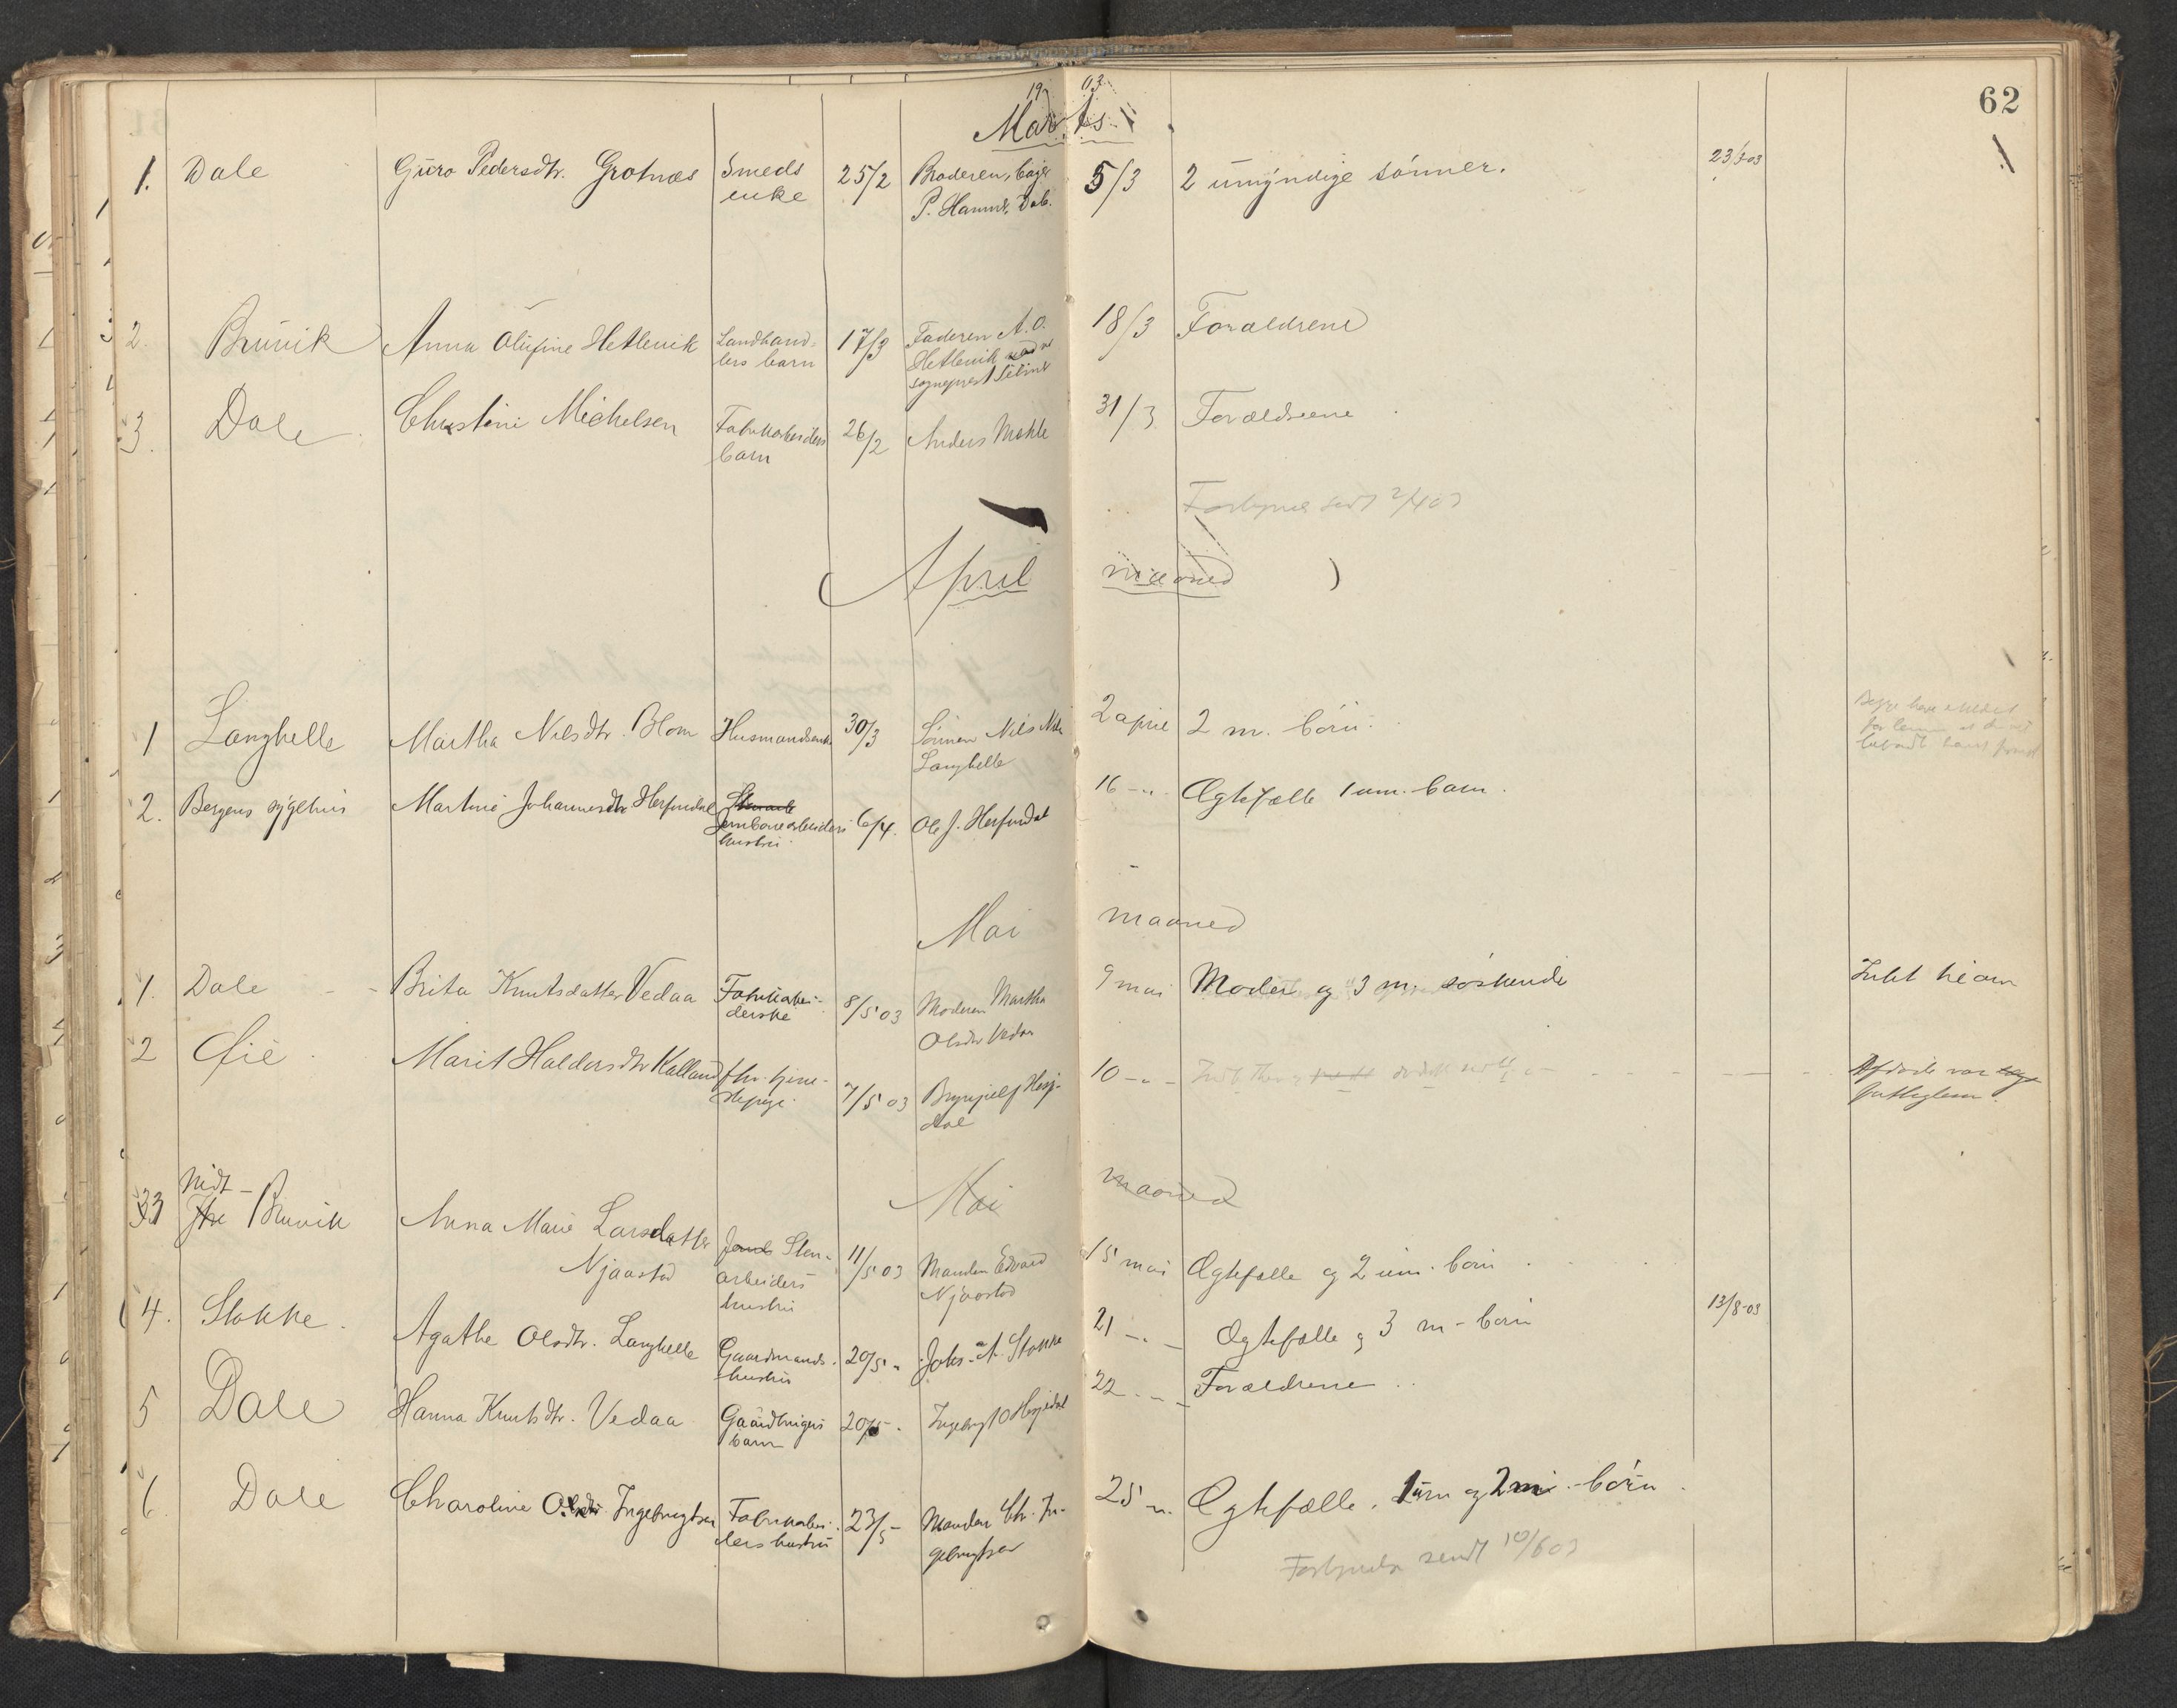 62
1903
Marts
1. Dale Guro Pedersdtr. Grotnæs Smeds 25/2 Broderen, 5/3 2 umyndige sønner. 23/3-03
enke P. Hamre, Dale.
2. Bruvik Anna Olufine Hetlevik Landhand- 17/3 Faderen A. O. 18/3 Forældrene
lers barn Hetlevik
sogneprest
3. Dale Christine Michelsen Fabrikarbeiders 26/2 Anders 31/3 Forældrene
barn
sendt 2/4 03
April maaned
1 Langhelle Martha Nilsdtr. Blom Husmandsenke 30/3 Sønnen Nils 2 april 2 m. børn.
Langhelle
2. Bergens sygehus Martine Johannesdtr Herfindal
Jernbanearbeiders 6/4. Ole J. Herfindal 16 -"- Ægtefælle 1 um. barn.
hustru
Mai maaned
1. Dale Brita Knutsdatter Vedaa Fabrikarbei- 8/5 03 Moderen Martha 9 mai Moder og 3 m. søskende Intet
derske Olsdtr Vedaa
2 Øie Marit Haldorsdtr Kalland fhv. tjene- 7/5 03 Brynjulf Hesj- 10 -"- Afdøde var
stepige dal fattiglem.
Mai maaned
Midt-
33 Bruvik Anna Marie Larsdatter
Njaastad Sten- 11/5 03 Manden Edvard 15 mai Ægtefælle og 2 um. børn
arbeiders Njaastad
hustru
4. Stokke. Agathe Olsdtr. Langhelle Gaardmands- 20/5 " Johs. A. Stokke 21 -"- Ægtefælle og 3 m - børn 13/8-03
hustru
5 Dale Hanna Knutsdtr. Vedaa Gaardbrugers 20/5 - Ingebrigt O Hesjedal 22 -"- Forældrene
barn
6 Dale Charoline Olsdtr Ingebrigtsen Fabrikarbei- 23/5 - Manden Chr. In- 25 -"- Ægtefælle. 1 um og 2 m. børn.
ders hustru gebrigtsen
sendt 10/6 03